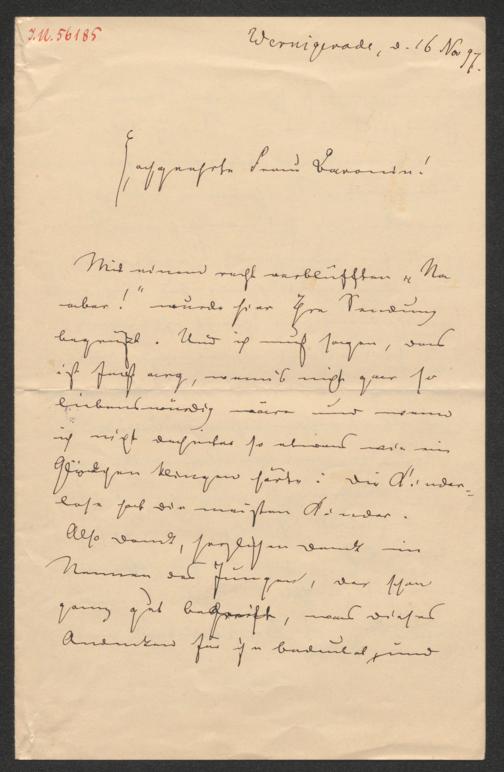 J.N. 56185
Wernigerode, d. 16 Nov 97.
Hochgeehrte Frau Baronin!
Mit einem recht verblüfften „Na
aber!" wurde hier Ihre Sendung
begrüßt. Und ich muß sagen, das
ist stark arg, wenn's nicht gar so
liebenswürdig wäre und wenn
ich nicht dahinter so etwas wie ein
Glöckchen klingen hörte: Die Kinder-
lose hat die meisten Kinder.
Also Dank, herzlichen Dank im
Namen des Jungen, der schon
ganz gut begreift, was dieses
Andenken für ihn bedeutet, und